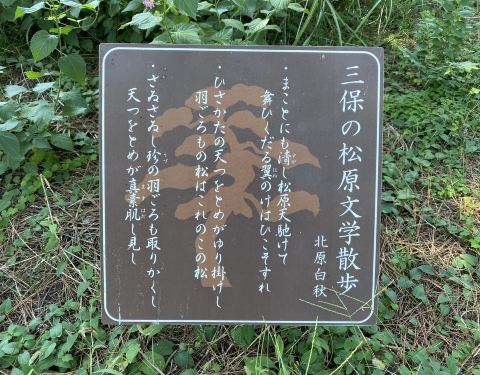 三保の松原文学散歩
北原白秋
・まことにも清し松原天馳けて
舞ひくだる翼のけはひこそすれ
・ひさかたの天つをとめがゆり掛けし
羽ごろもの松はこれのこの松
・さゐさゐし珍の羽ごろも取りかくし
天つをとめが真素肌し見し